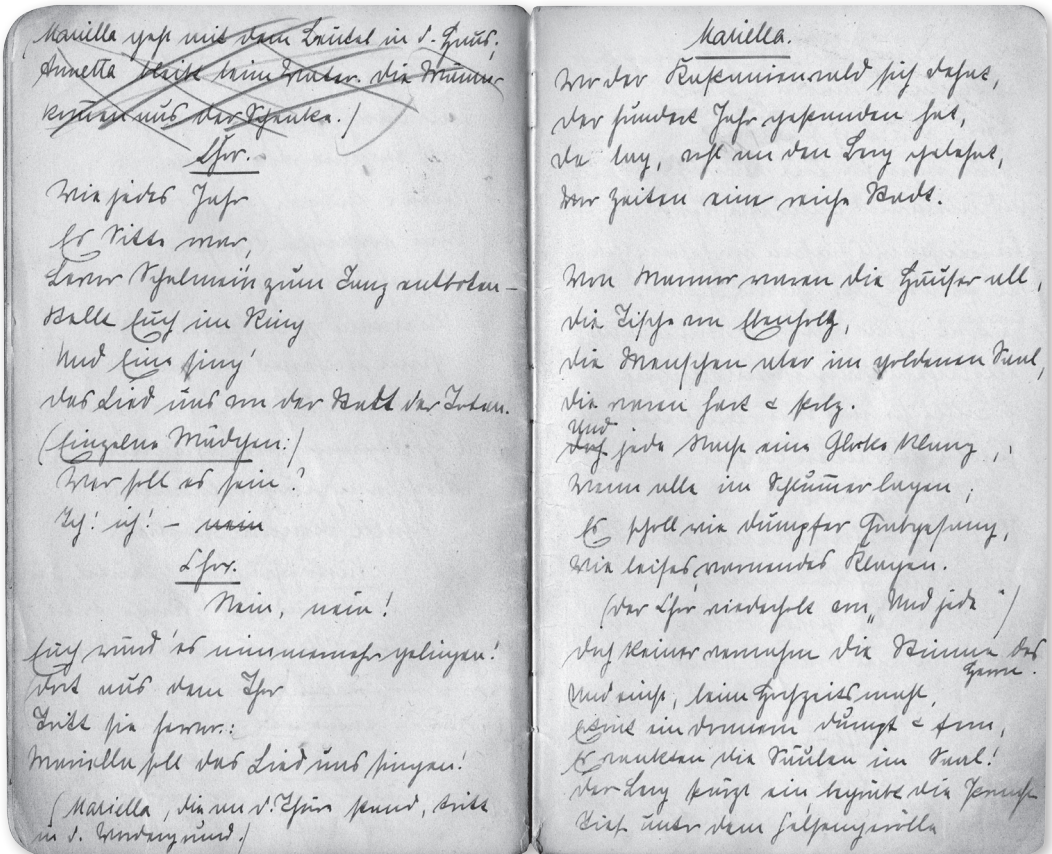 (Mariella geht mit dem Beutel in d. Haus;
Annetta bleibt beim Vater. Die Männer
kom̄en aus der Schenke.)
Chor.
Wie jedes Jahr
Es Sitte war,
Bevor Schalmein zum Tanz entboten –
Stellt Euch im Ring
Und Eine sing'
Das Lied uns von der Stadt der Toten.
(Einzelne Mädchen:)
Wer soll es sein?
Ich! ich! – nein
Chor.
Nein, nein!
Euch würd' es nimmermehr gelingen!
Dort aus dem Thor
Tritt sie hervor:
Mariella soll das Lied uns singen!
(Mariella, die an d. Thüre stand, tritt
in d. Vordergrund.)
Mariella.
Wo der Kastanienwald sich dehnt,
Der hundert Jahr gestanden hat,
Da lag, echt an den Berg gelehnt,
Vor Zeiten eine reiche Stadt.
Von Marmor waren die Häuser all,
Die Tische von Ebenholz,
Die Menschen aber im goldenen Saal,
Die waren hart & stolz.
Und
Doch jede Nacht eine Glocke klang,
Wenn alle im Schlum̄er lagen;
Es scholl wie dumpfer Grabgesang,
Wie leises, warnendes Klagen.
(Der Chor wiederholt von „Und jede")
Doch keiner vernahm die Stimme des
Herrn.
Und einst, beim Hochzeitsmahl,
ein Donnern dumpf & fern,
Es wankten die Säulen im Saal!
Der Berg stürzt ein, begräbt die Pracht
Tief unter dem Felsengerölle